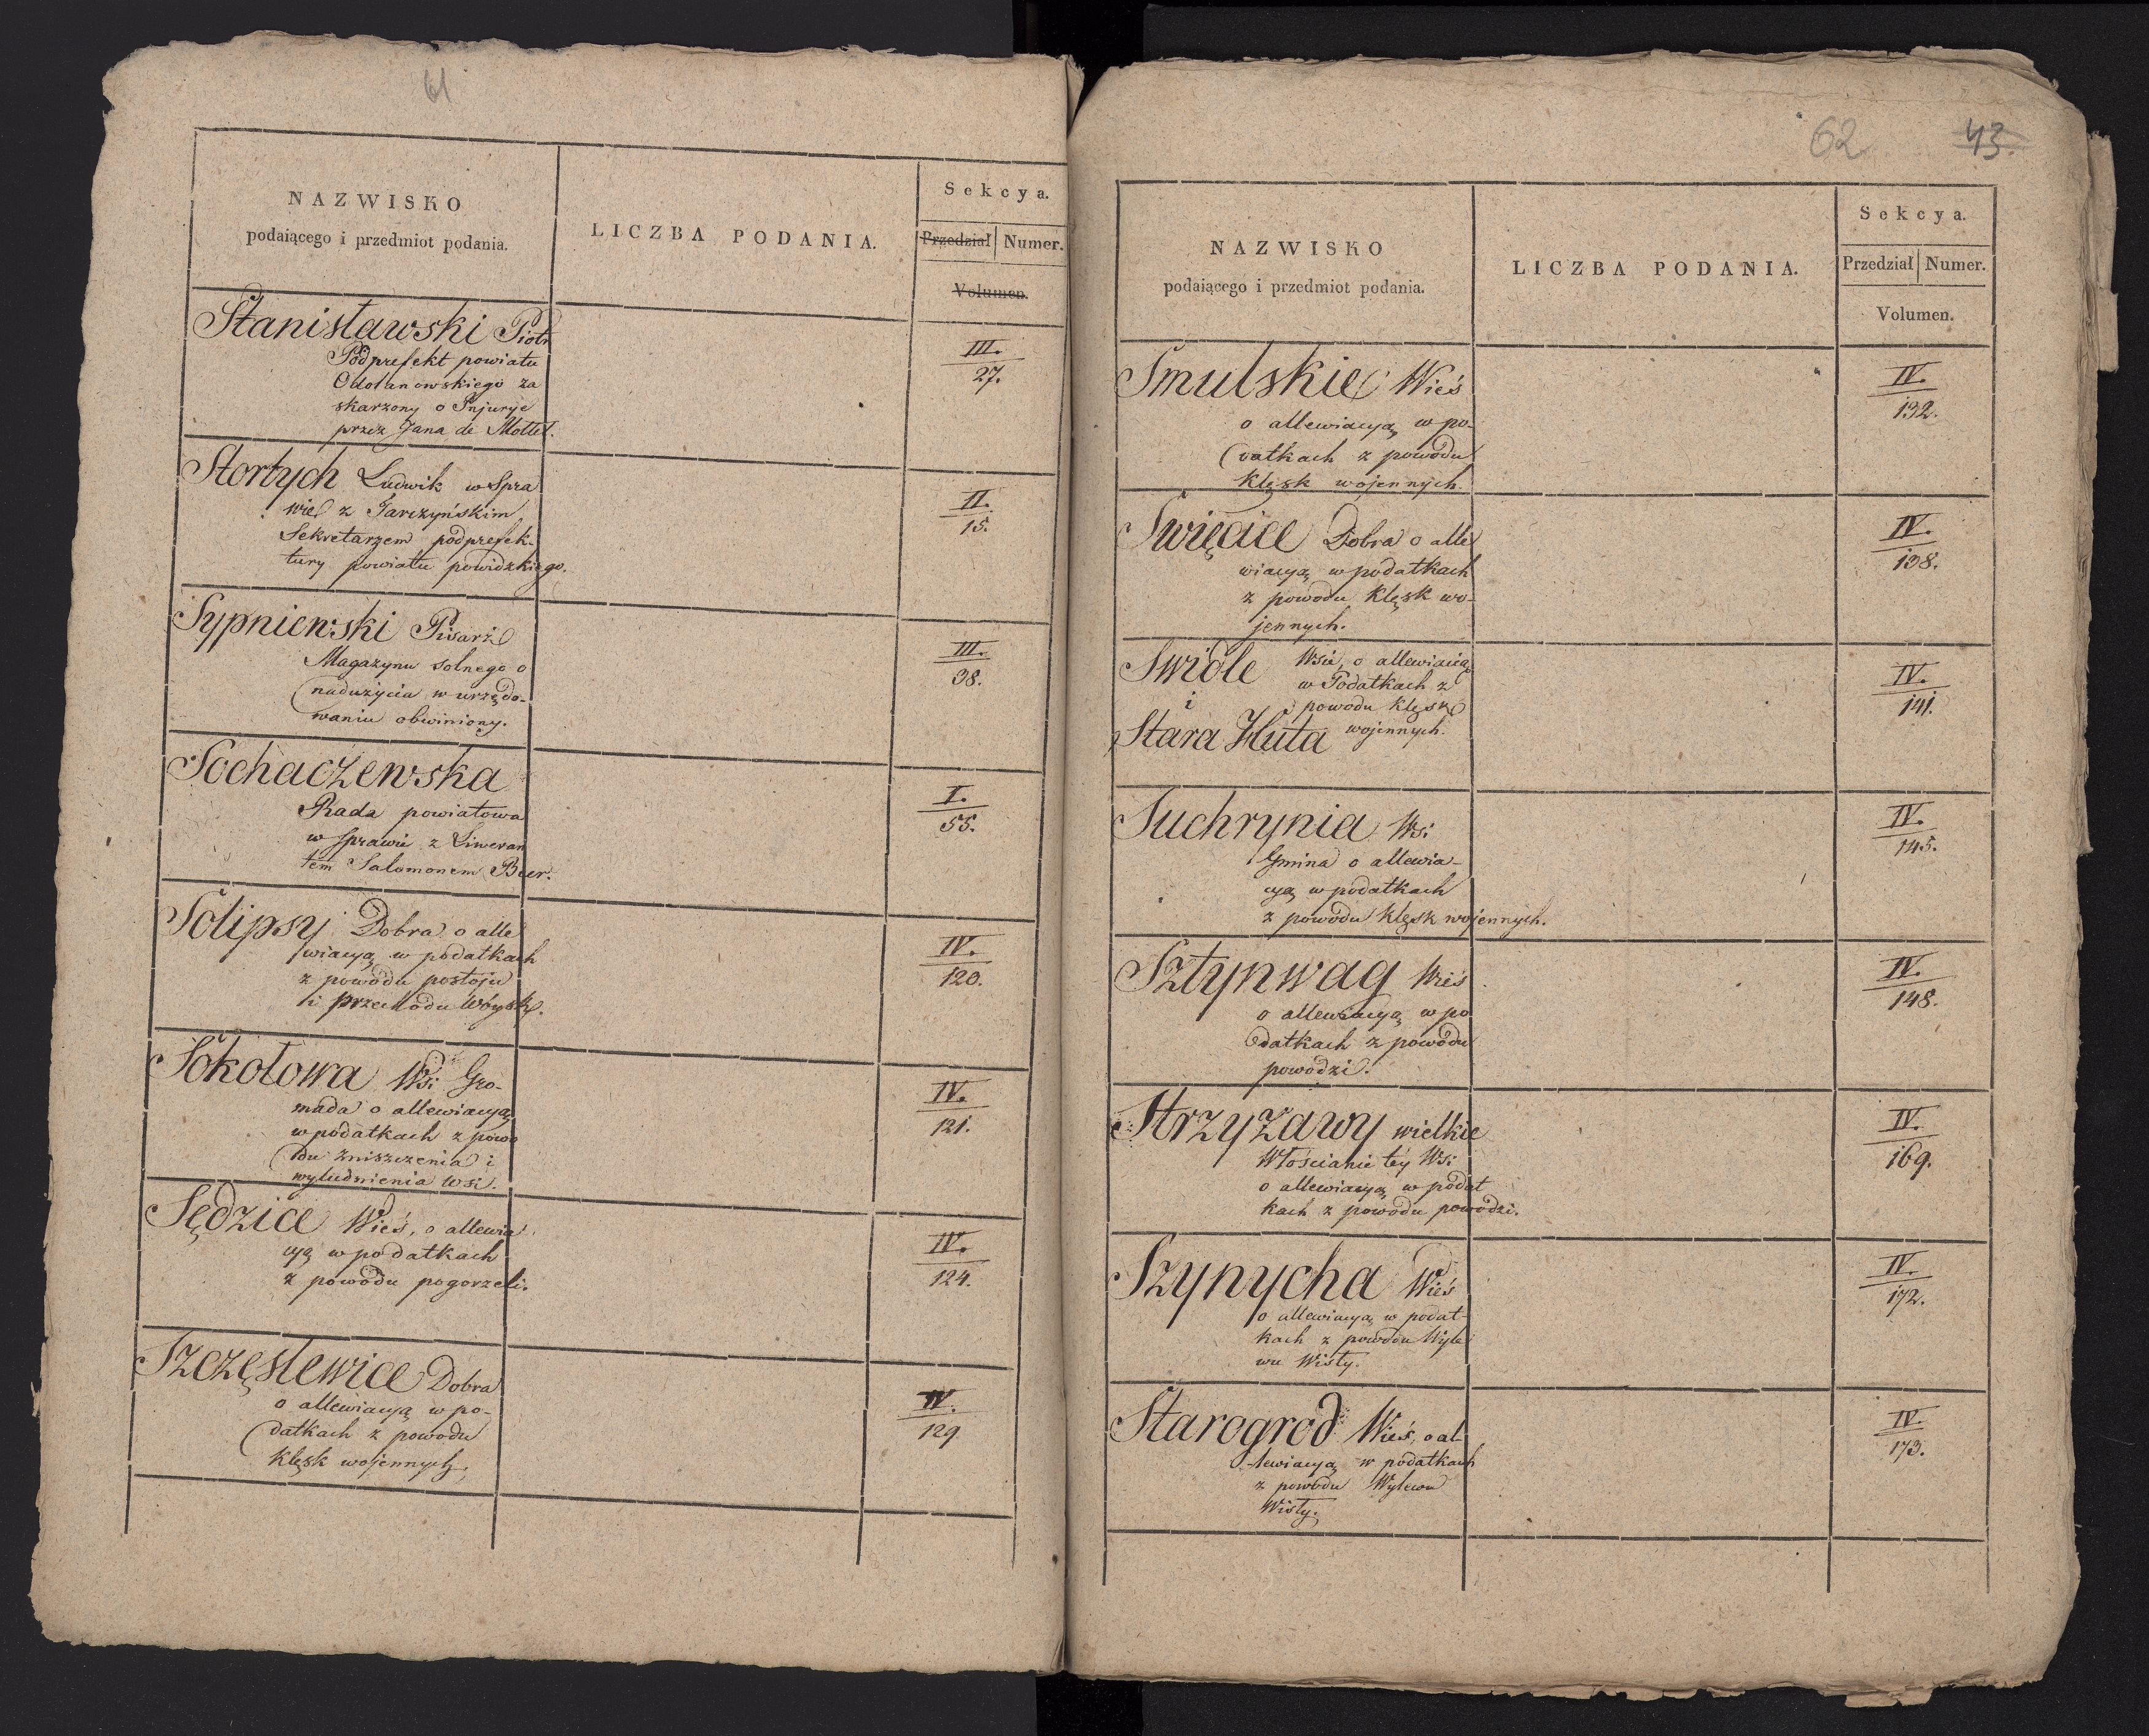 61
NAZWISKO
podaiącego i przedmiot podania.
LICZBA PODANIA.
Sekcya.
Przedział Numer.
Volumen.
Stanisławski Piotr
Podprefekt powiatu
Odolanowskiego za
skarzony o Injurye
przez Jana de Mottet.
III.
27.
Stortych Ludwik w Spra
wie z Jarczyńskim
Sekretarzem podprefek-
tury powiatu powidzkiego.
II.
15.
Sypniewski Pisarz
Magazynu solnego o
nadużycia w urzędo-
waniu obwiniony.
III.
38.
Sochaczewska
Rada powiatowa
w Sprawie z Liweran
tem Salomonem Beer.
I.
55.
Solipsy Dobra o alle
wiacyą w podatkach
z powodu postoju
i przechodu Woysk.
IV.
120.
Sokołowa Wsi Gro-
mada o allewiacyą
w podatkach z powo
du zniszczenia i
wyludnienia wsi.
IV.
121.
Sędzice Wieś, o allewia
cyą w podatkach
z powodu pogorzeli.
IV.
124.
Szczęslewice Dobra
o allewiacyą w po-
datkach z powodu
klęsk wojennych.
IV.
129.
62 43.
NAZWISKO
podaiącego i przedmiot podania.
LICZBA PODANIA.
Sekcya.
Przedział Numer.
Volumen.
Smulskie Wieś
o allewiacyą w po-
datkach z powodu
klęsk wojennych.
IV.
132.
Swięcice Dobra o alle
wiacyą w podatkach
z powodu klęsk wo-
jennych.
IV.
138.
Swidle Wsie, o allewiacią
w Podatkach z
i powodu klęsk
Stara Huta wojennych.
IV.
141.
Suchrynia Wsi
Gmina o allewia-
cyą w podatkach
z powodu klęsk wojennych.
IV.
145.
Sztynwag Wieś
o allewiacyą w po
datkach z powodu
powodzi.
IV.
148.
Strzyżawy wielkie
Włościanie téy Wsi
o allewiacyą w podat
kach z powodu powodzi.
IV.
169.
Szynycha Wieś
o allewiacyą w podat-
kach z powodu Wyle
wu Wisły.
IV.
172.
Starogrod Wieś, o al-
lewiacyą w podatkach
z powodu Wylewu
Wisły.
IV.
173.